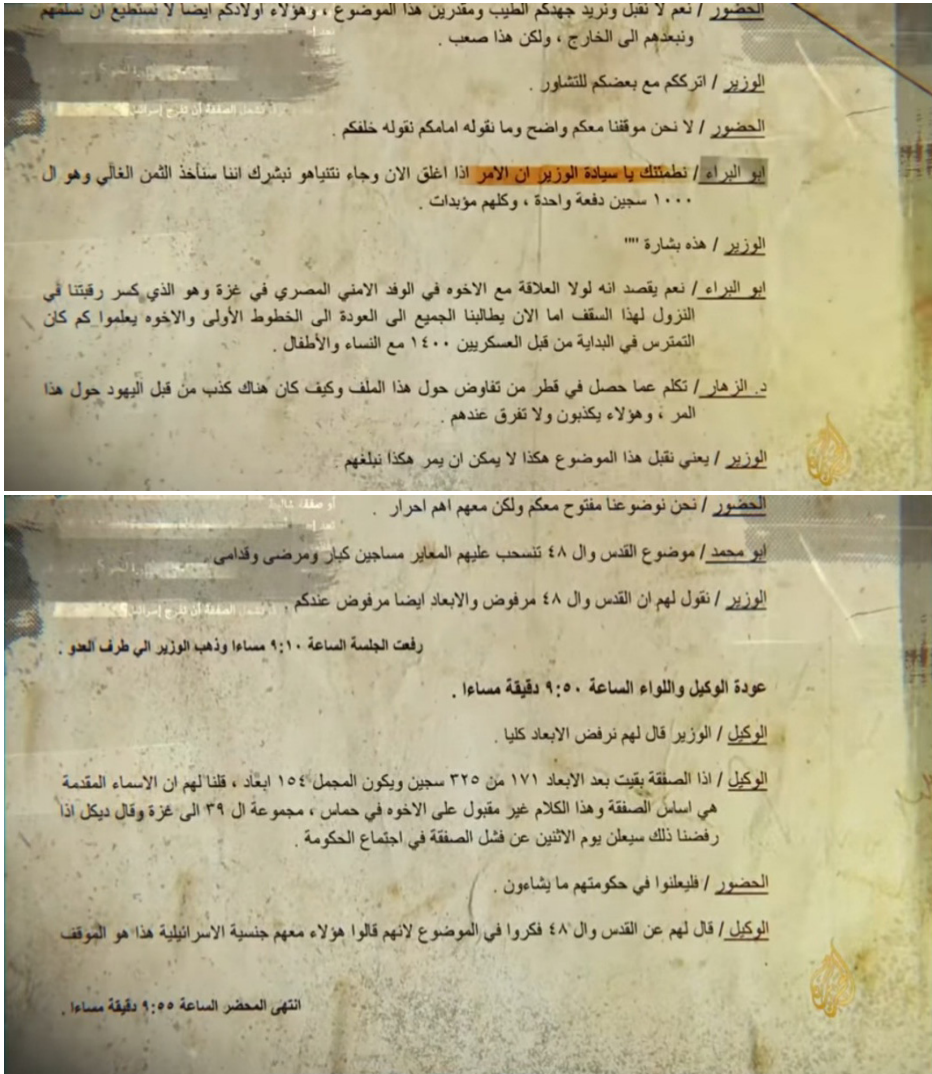 الحضور / نعم لا نقبل ونريد جهدكم الطيب ومقدرين هذا الموضوع ، وهؤلاء اولادكم ايضا لا نستطيع ان نسلمهم
ونبعدهم الى الخارج ، ولكن هذا صعب .
الوزير / اترككم مع بعضكم للتشاور .
الحضور / لا نحن موقفنا معكم واضح وما نقوله امامكم نقوله خلفكم .
ابو البراء / نطمئنك يا سيادة الوزير ان الامر اذا اغلق الان وجاء نتنياهو نبشرك اننا سنأخذ الثمن الغالي وهو ال
١٠٠٠ سجين دفعة واحدة ، وكلهم مؤبدات .
الوزير / هذه بشارة ""
ابو البراء / نعم يقصد انه لولا العلاقة مع الاخوه في الوفد الامني المصري في غزة وهو الذي كسر رقبتنا في
النزول لهذا السقف اما الان يطالبنا الجميع الى العودة الى الخطوط الأولى والاخوه يعلموا كم كان
التمترس في البداية من قبل العسكريين ١٤٠٠ مع النساء والأطفال .
د. الزهار / تكلم عما حصل في قطر من تفاوض حول هذا الملف وكيف كان هناك كذب من قبل اليهود حول هذا
المر ، وهؤلاء يكذبون ولا تفرق عندهم .
الوزير / يعني نقبل هذا الموضوع هكذا لا يمكن ان يمر هكذا نبلغهم .
الحضور / نحن نوضوعنا مفتوح معكم ولكن معهم اهم احرار .
ابو محمد / موضوع القدس وال ٤٨ تنسحب عليهم المعاير مساجين كبار ومرضى وقدامى .
الوزير / نقول لهم ان القدس وال ٤٨ مرفوض والابعاد ايضا مرفوض عندكم .
رفعت الجلسة الساعة ٩:١٠ مساءا وذهب الوزير الي طرف العدو .
عودة الوكيل واللواء الساعة ٩:٥٠ دقيقة مساءا .
الوكيل / الوزير قال لهم نرفض الابعاد كليا .
الوكيل / اذا الصفقة بقيت بعد الابعاد ١٧١ من ٣٢٥ سجين ويكون المجمل ١٥٤ ابعاد ، قلنا لهم ان الاسماء المقدمة
هي اساس الصفقة وهذا الكلام غير مقبول على الاخوه في حماس ، مجموعة ال ٣٩ الى غزة وقال ديكل اذا
رفضنا ذلك سيعلن يوم الاثنين عن فشل الصفقة في اجتماع الحكومة .
الحضور / فليعلنوا في حكومتهم ما يشاءون .
الوكيل / قال لهم عن القدس وال ٤٨ فكروا في الموضوع لانهم قالوا هؤلاء معهم جنسية الاسرائيلية هذا هو الموقف
انتهى المحضر الساعة ٩:٥٥ دقيقة مساءا .